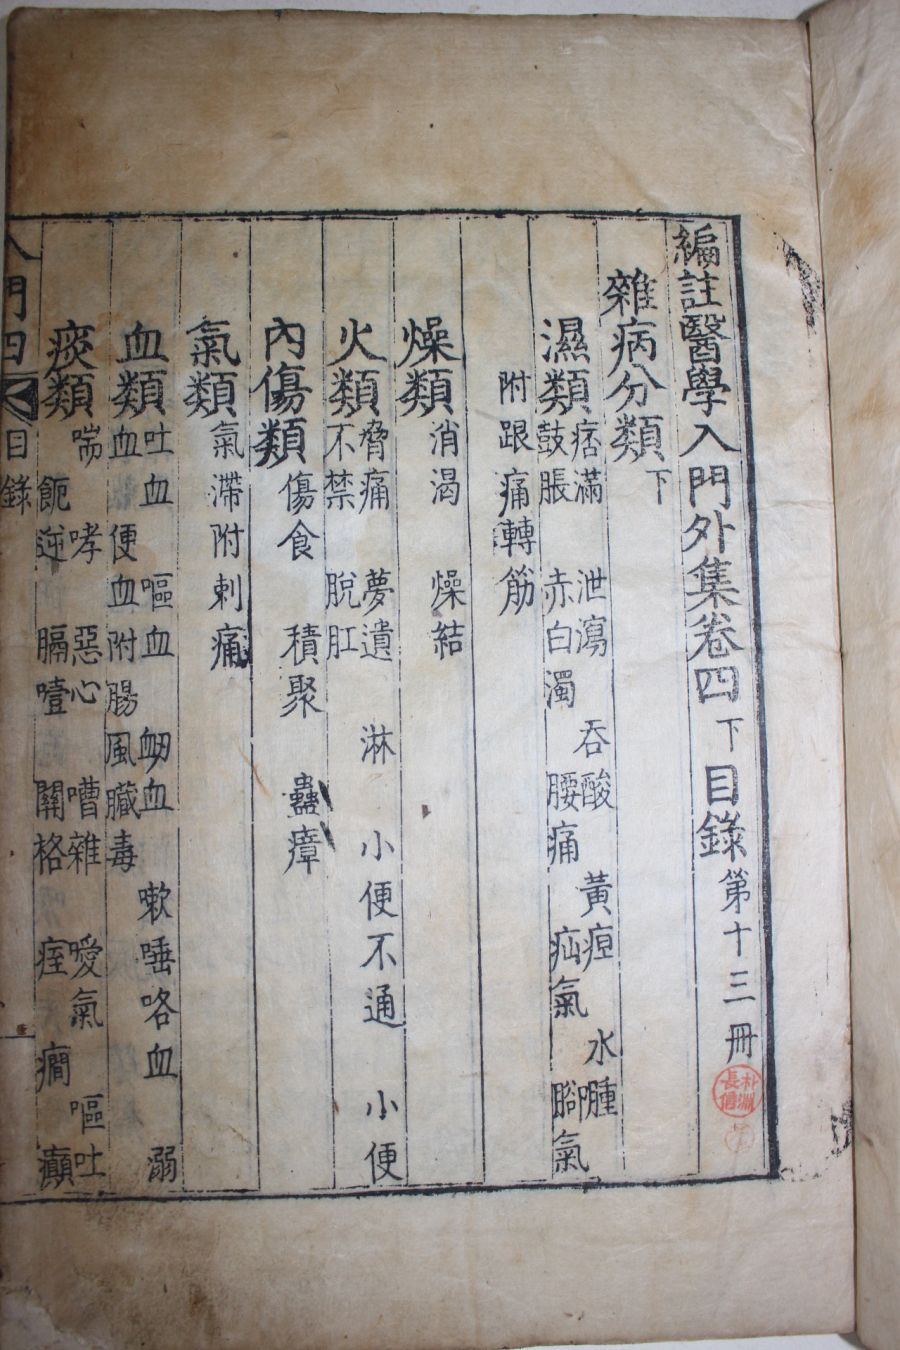 編註醫學入門外集卷四下目錄第十三冊
雜病分類下
濕類痞滿 泄瀉 吞酸 黃疸 水腫
鼓脹 赤白濁 腰痛 疝氣 腳氣
附跟痛轉筋
燥類消渴 燥結
火類脅痛 夢遺 淋 小便不通 小便
不禁 脫肛
內傷類傷食 積聚 蠱瘴
氣類氣滯附刺痛
血類吐血 嘔血 衂血 嗽唾咯血 溺
血 便血附腸風臟毒
痰類喘 哮 惡心 嘈雜 噯氣 嘔吐
呃逆 膈噎 關格 痓 癎 癲
入門四 目錄